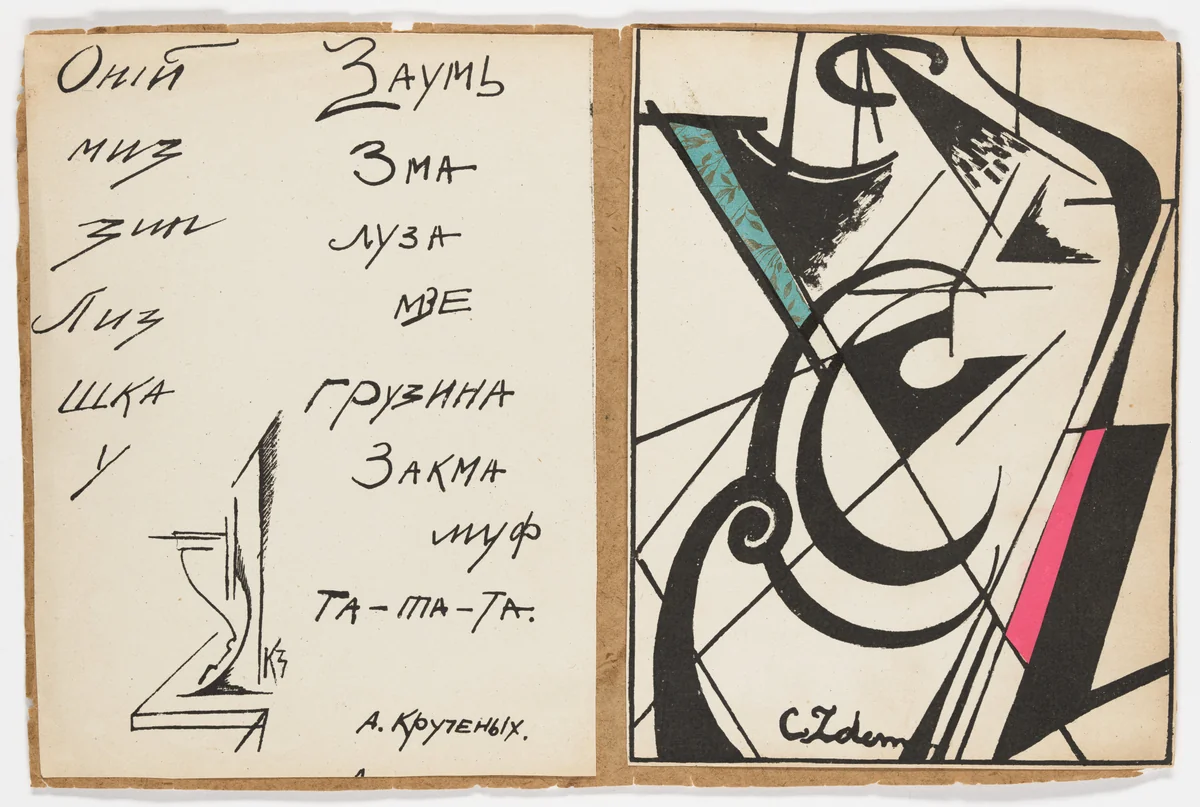 Оній
миз
зин
Лиз
шка
у
Заумь
Зма
луза
мзе
грузина
Закма
муф
та-та-та.
КЗ
А. Крученых.
C. Zdem